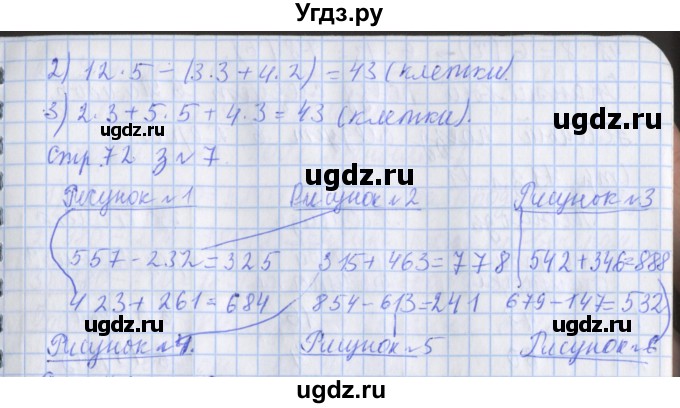 Угдз.ру
2) 12·5 − (3·3 + 4·2) = 43 (клетки).
3) 2·3 + 5·5 + 4·3 = 43 (клетки).
ugdz.ru ugdz.ru
Стр 72 з №7.
ugdz.ru
Рисунок №1 Рисунок №2 Рисунок №3
ugdz.ru ugdz.ru
557 − 232 = 325 315 + 463 = 778 542 + 346 = 888
ugdz.ru
423 + 261 = 684 854 − 613 = 241 679 − 147 = 532
ugdz.ru ugdz.ru
Рисунок №4. Рисунок №5 Рисунок №6
ugdz.ru